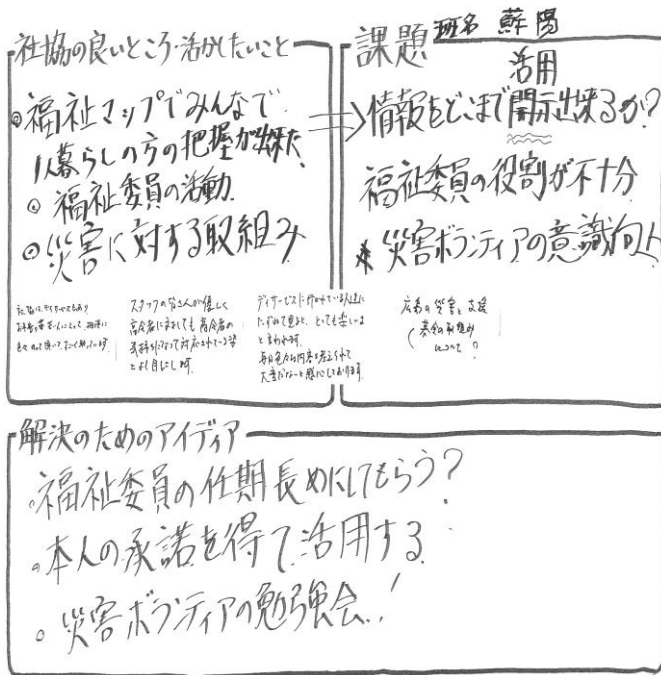 社協の良いところ・活かしたいこと
◎福祉マップでみんなで
1人暮らしの方の把握が出来た
◎福祉委員の活動
◎災害に対する取組み
スタッフの皆さんが優しく
高令者にましても高令者の
気持ちになって対応されている姿
をよく目にします。
デイサービスに行かせている人達に
たずねて見ると、とても楽しいよ
と言われます。
毎日色々な内容を考えられて
大変だなーと感心しております。
課題 班名 蘇陽
活用
情報をどこまで開示出来るか?
福祉委員の役割が不十分
災害ボランティアの意識向上
広島の災害と支援
解決のためのアイディア
・福祉委員の任期長めにしてもらう?
・本人の承諾を得て活用する
・災害ボランティアの勉強会!